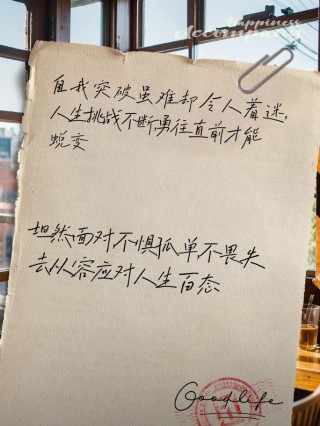 Happiness
accompany
自我突破虽难却令人着迷,
人生挑战不断勇往直前才能
蜕变
坦然面对不惧孤单不畏失
去从容应对人生百态
Good life